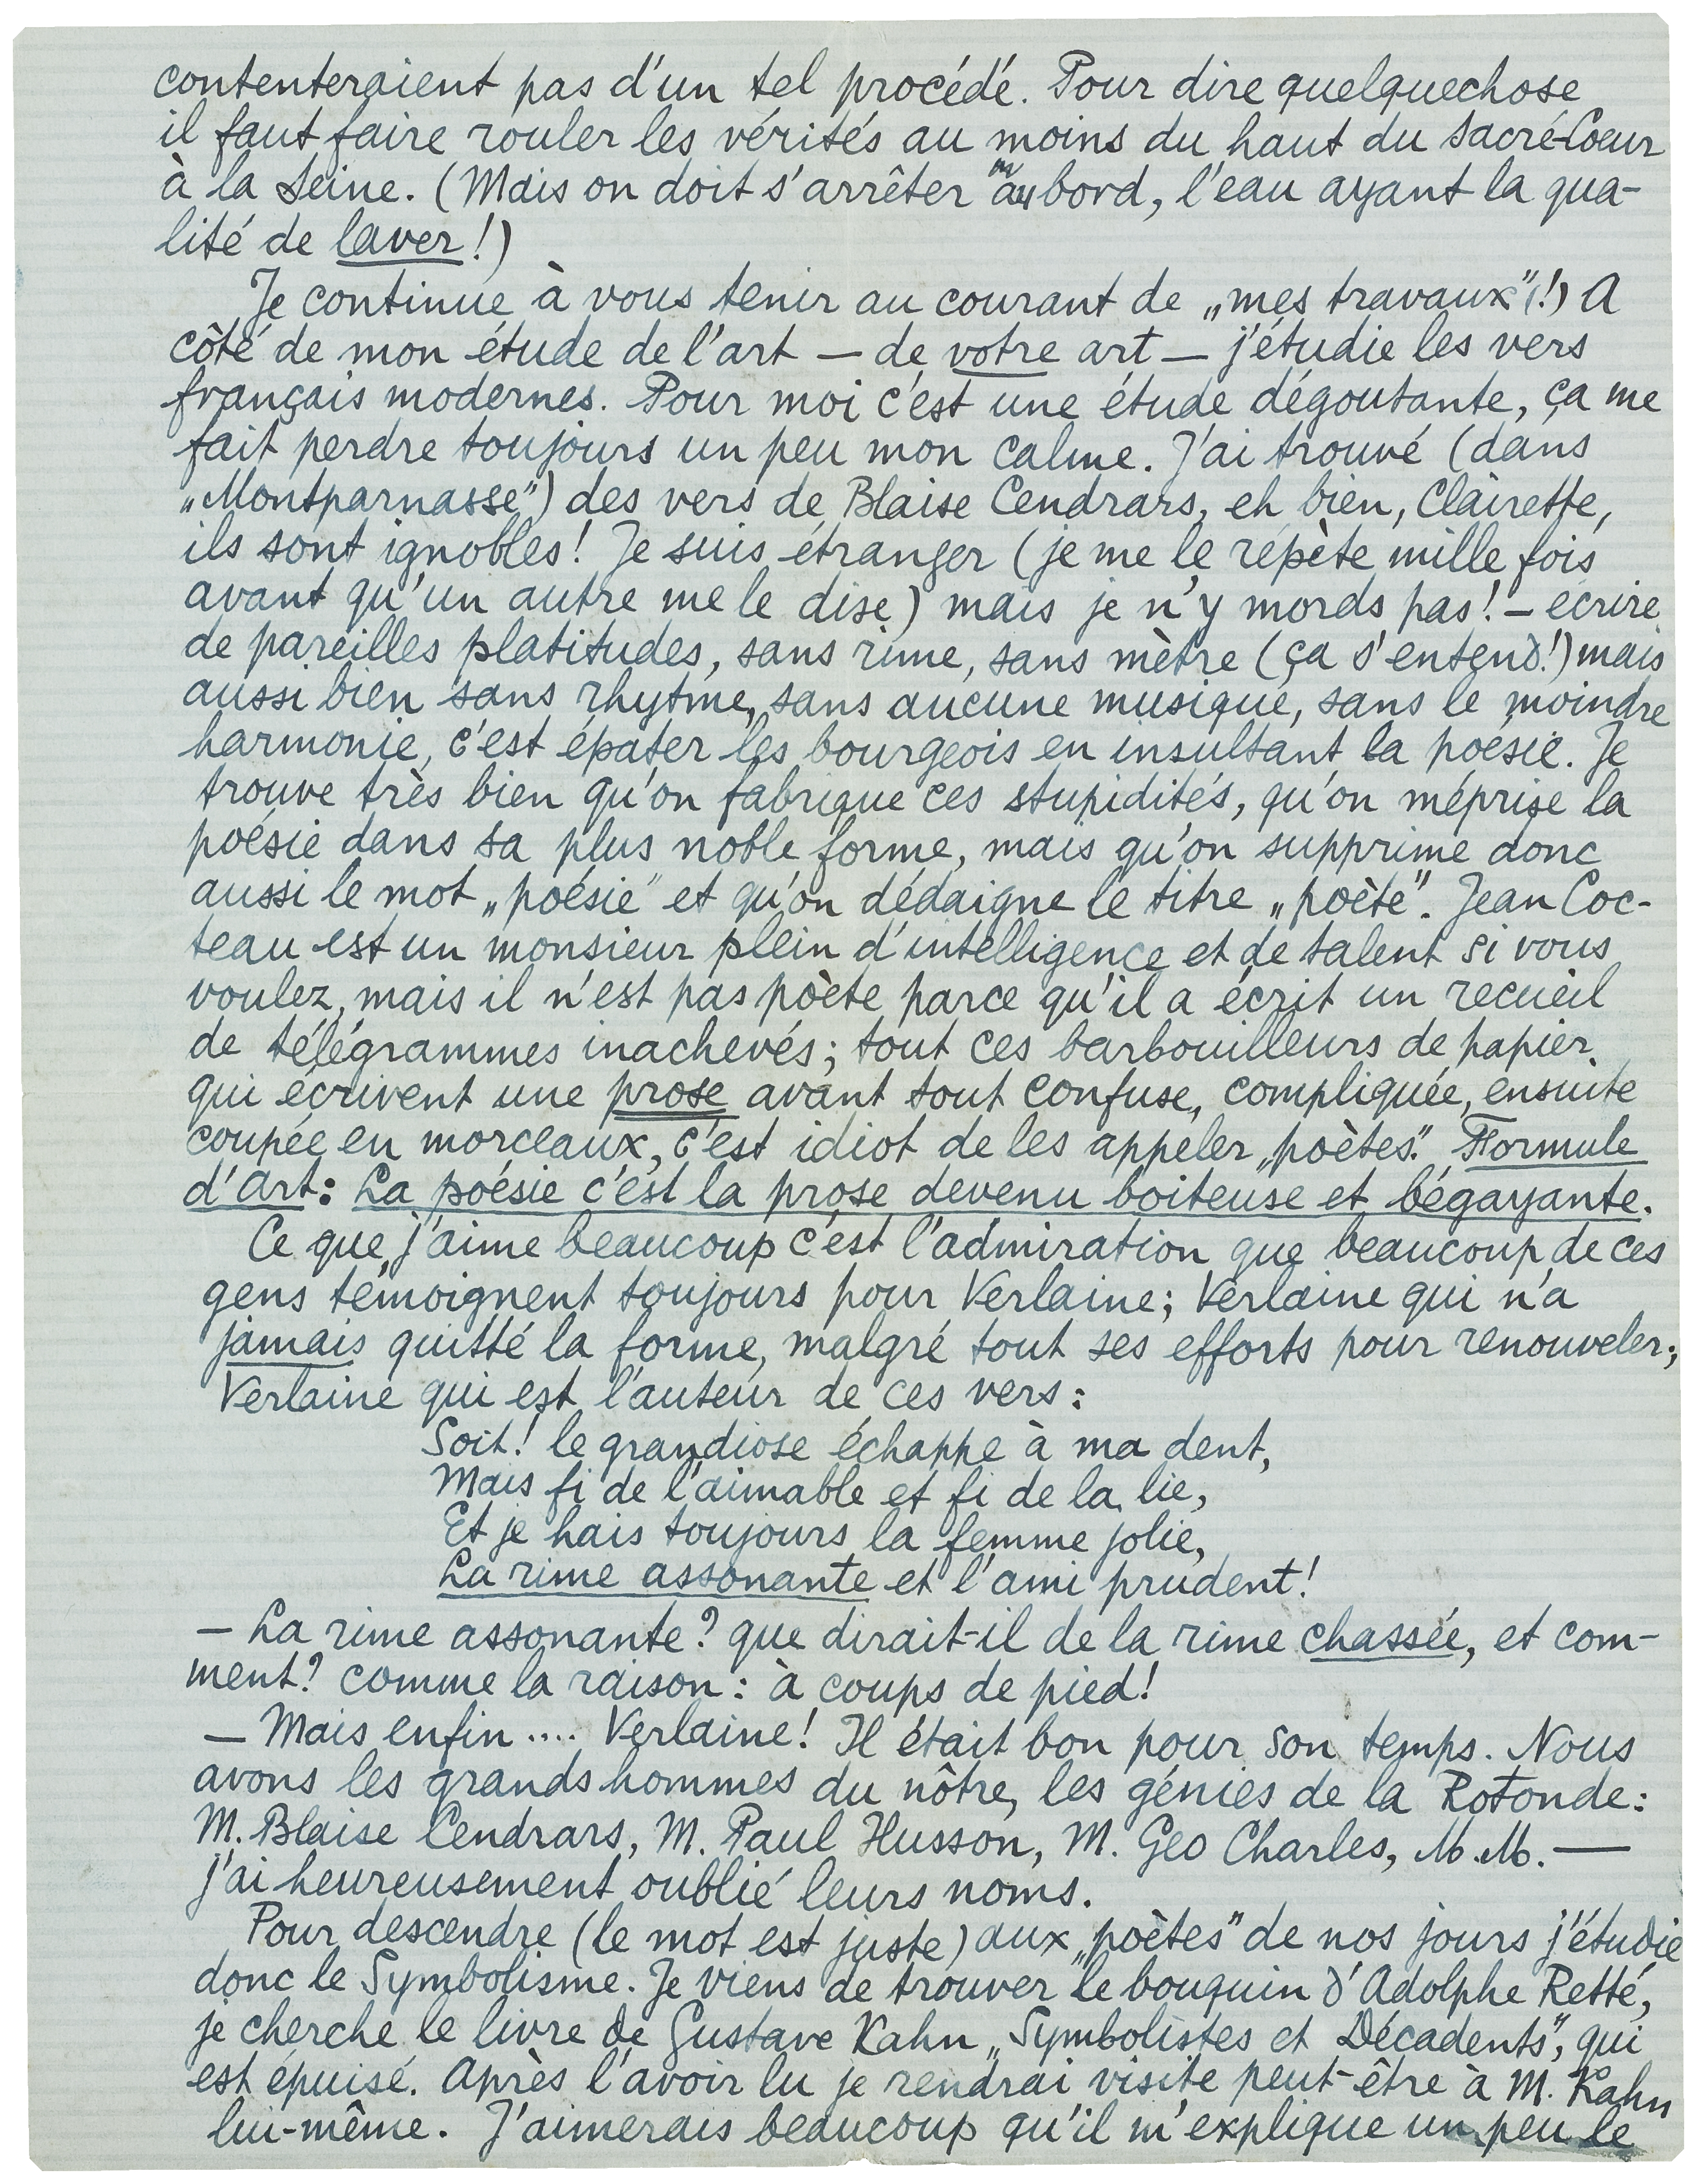 contenteraient pas d'un tel procédé. Pour dire quelquechose
il faut faire rouler les vérités au moins du haut du Sacré-Coeur
à la Seine. (Mais on doit s'arrêter au bord, l'eau ayant la qua-
lité de laver!)
Je continue à vous tenir au courant de „mes travaux"(!) A
côté de mon étude de l'art — de votre art — j'étudie les vers
français modernes. Pour moi c'est une étude dégoutante, ça me
fait perdre toujours un peu mon calme. J'ai trouvé (dans
„Montparnasse") des vers de Blaise Cendrars, eh bien, Clairette,
ils sont ignobles! Je suis étranger (je me le répète mille fois
avant qu'un autre me le dise) mais je n'y mords pas! – écrire
de pareilles platitudes, sans rime, sans mètre (ça s'entend!) mais
aussi bien sans rhytme, sans aucune musique, sans le moindre
harmonie, c'est épater les bourgeois en insultant la poésie. Je
trouve très bien qu'on fabrique ces stupidités, qu'on méprise la
poésie dans sa plus noble forme, mais qu'on supprime donc
aussi le mot „poésie" et qu'on dédaigne le titre „poète". Jean Coc-
teau est un monsieur plein d'intelligence et de talent si vous
voulez, mais il n'est pas poète parce qu'il a écrit un recueil
de télégrammes inachevés; tout ces barbouilleurs de papier
qui écrivent une prose avant tout confuse, compliquée, ensuite
coupée en morceaux, c'est idiot de les appeler „poètes". Formule
d'Art: La poésie c'est la prose devenu boiteuse et bégayante.
Ce que j'aime beaucoup c'est l'admiration que beaucoup de ces
gens témoignent toujours pour Verlaine; Verlaine qui n'a
jamais quitté la forme, malgré tout ses efforts pour renouveler;
Verlaine qui est l'auteur de ces vers:
Soit! le grandiose échappe à ma dent,
Mais fi de l'aimable et fi de la lie,
Et je hais toujours la femme jolie,
La rime assonante et l'ami prudent!
— La rime assonante? que dirait-il de la rime chassée, et com-
ment? comme la raison: à coups de pied!
— Mais enfin .... Verlaine! Il était bon pour son temps. Nous
avons les grands hommes du nôtre, les génies de la Rotonde:
M. Blaise Cendrars, M. Paul Husson, M. Geo Charles, M.M. —
j'ai heureusement oublié leurs noms.
Pour descendre (le mot est juste) aux „poètes" de nos jours j'étudie
donc le Symbolisme. Je viens de trouver le bouquin d'Adolphe Retté,
je cherche le livre de Gustave Kahn „Symbolistes et Décadents", qui
est épuisé. Après l'avoir lu je rendrai visite peut-être à M. Kahn
lui-même. J'aimerais beaucoup qu'il m'explique un peu le